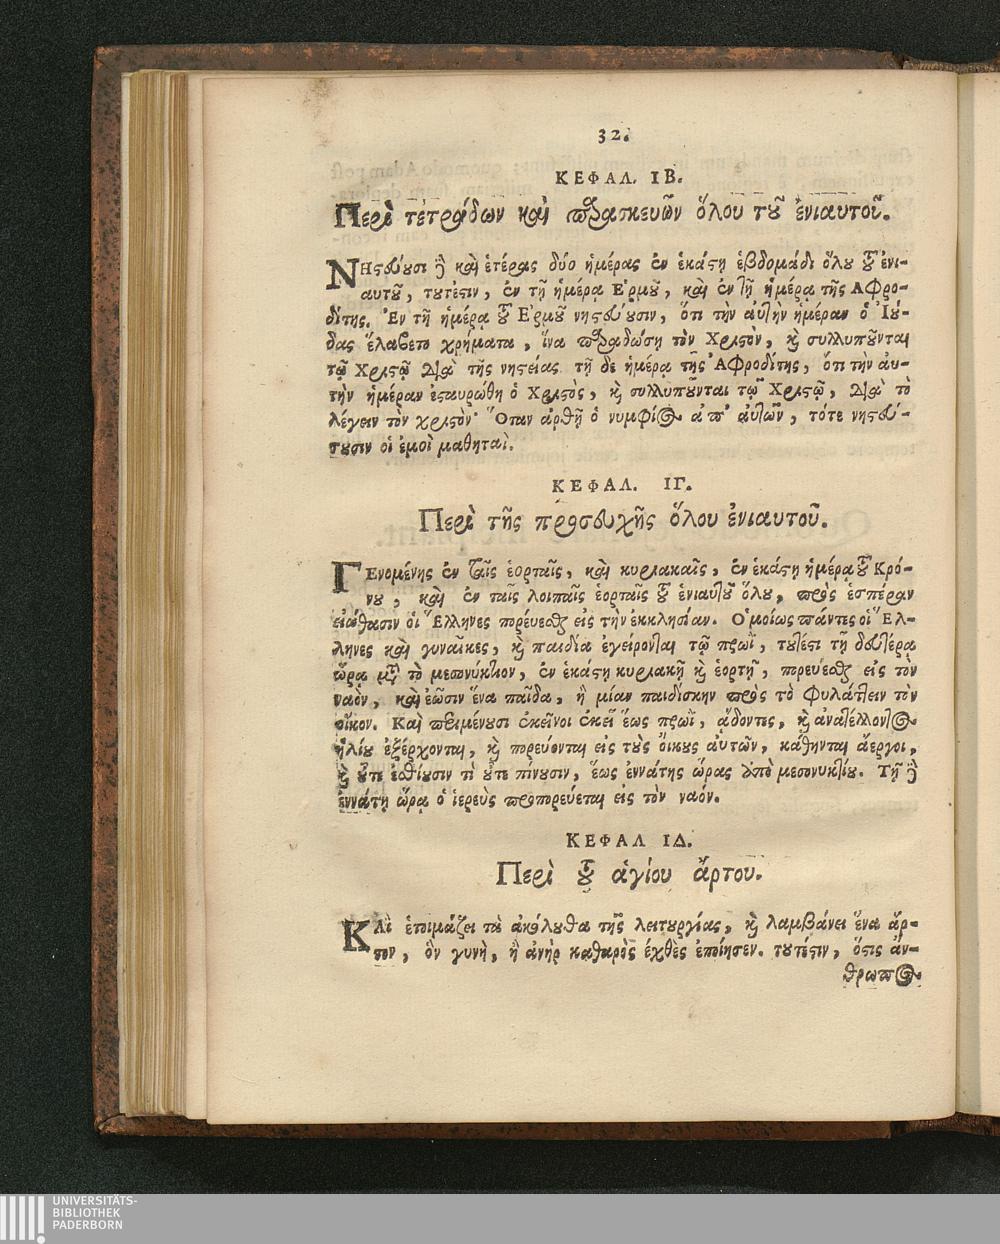 32.
ΚΕΦΑΛ. ΙΒ.
Περὶ τετράδων καὶ παρασκευῶν ὅλου τοῦ ἐνιαυτοῦ.
ΝΗστεύουσι δὲ καὶ ἑτέρας δύο ἡμέρας ἐν ἑκάστῃ ἑβδομάδι ὅλου τοῦ ἐνι-
αυτοῦ, τουτέστιν, ἐν τῇ ἡμέρᾳ Ἑρμοῦ, καὶ ἐν τῇ ἡμέρᾳ τῆς Ἀφρο-
δίτης. Ἐν τῇ ἡμέρᾳ τοῦ Ἑρμοῦ νηστεύουσιν, ὅτι τὴν αὐτὴν ἡμέραν ὁ Ἰού-
δας ἔλαβετο χρήματα, ἵνα παραδώσῃ τὸν Χριστὸν, καὶ συλλυποῦνται
τῷ Χριστῷ διὰ τῆς νηστείας τῇ δὲ ἡμέρᾳ τῆς Ἀφροδίτης, ὅτι τὴν αὐ-
τὴν ἡμέραν ἐσταυρώθη ὁ Χριστὸς, καὶ συλλυποῦνται τῷ Χριστῷ, διὰ τὸ
λέγειν τὸν χριστὸν· Ὅταν ἀρθῇ ὁ νυμφίος ἀπ' αὐτῶν, τότε νηστεύ-
σουσιν οἱ ἐμοὶ μαθηταὶ.
ΚΕΦΑΛ. ΙΓ.
Περὶ τῆς προσευχῆς ὅλου ἐνιαυτοῦ.
ΓΕνομένης ἐν ταῖς ἑορταῖς, καὶ κυριακαῖς, ἐν ἑκάστῃ ἡμέρᾳ τοῦ Κρό-
νου, καὶ ἐν ταῖς λοιπαῖς ἑορταῖς τοῦ ἐνιαυτοῦ ὅλου, πρὸς ἑσπέραν
εἰώθασιν οἱ Ἕλληνες πορεύεσθαι εἰς τὴν ἐκκλησίαν. Ὁμοίως πάντες οἱ Ἕλ-
ληνες καὶ γυναῖκες, καὶ παιδία ἐγείρονται τῷ πρωῒ, τουτέστι τῇ δευτέρᾳ
ὥρᾳ μετὰ τὸ μεσονύκτιον, ἐν ἑκάστῃ κυριακῇ καὶ ἑορτῇ, πορεύεσθαι εἰς τὸν
ναὸν, καὶ ἐῶσιν ἕνα παῖδα, ἢ μίαν παιδίσκην πρὸς τὸ φυλάττειν τὸν
οἶκον. Καὶ περιμένουσι ἐκεῖνοι ἐκεῖ ἕως πρωῒ, ᾄδοντες, καὶ ἀνατέλλοντος
ἡλίου ἐξέρχονται, καὶ πορεύονται εἰς τοὺς οἴκους αὐτῶν, κάθηνται ἄεργοι,
καὶ οὔτε ἐσθίουσιν τὶ οὔτε πίνουσιν, ἕως ἐννάτης ὥρας ἀπὸ μεσονυκτίου. Τῇ δὲ
ἐννάτῃ ὥρᾳ ὁ ἱερεὺς προπορεύεται εἰς τὸν ναόν.
ΚΕΦΑΛ ΙΔ.
Περὶ τοῦ ἁγίου ἄρτου.
ΚΑὶ ἑτοιμάζει τὰ ἀκόλουθα τῆς λειτουργίας, καὶ λαμβάνει ἕνα ἄρ-
τον, ὃν γυνὴ, ἢ ἀνὴρ καθαρὸς ἐχθὲς ἐποίησεν. τουτέστιν, ὅστις ἄν-
θρωπος
UNIVERSITÄTS-
BIBLIOTHEK
PADERBORN